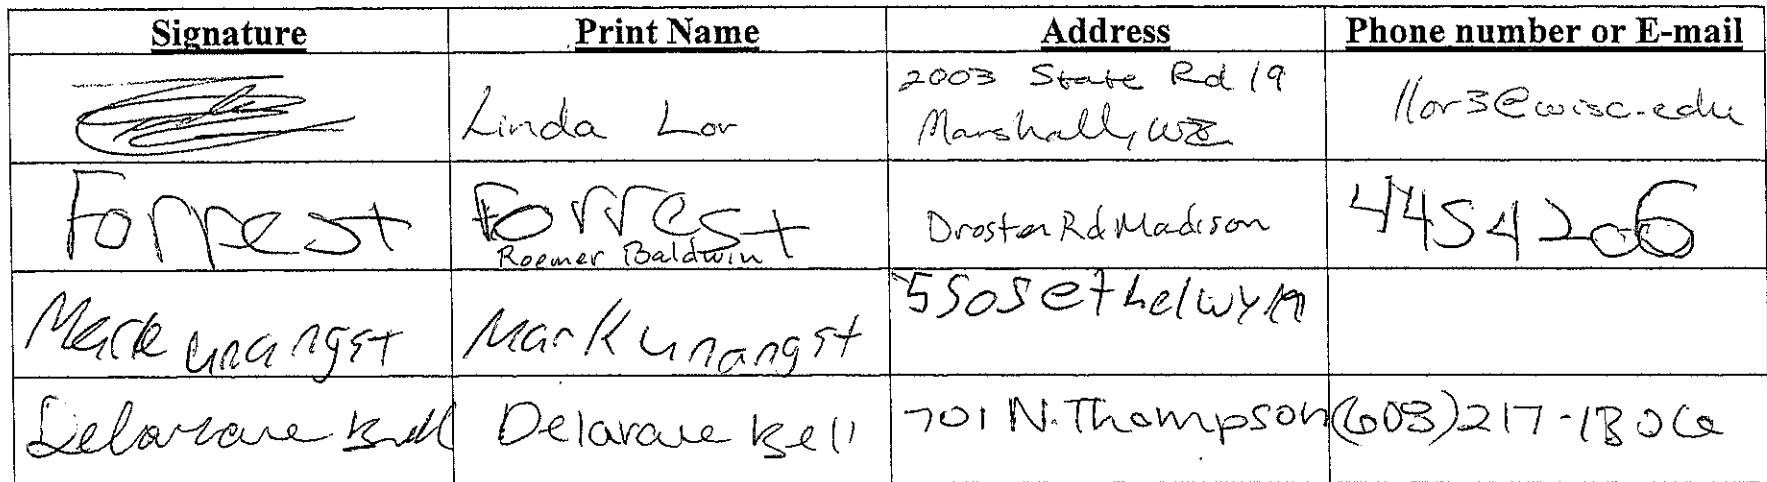 Signature Print Name Address Phone number or E-mail
Linda Lor 2003 State Rd 19
Marshall, WI llor3@wisc.edu
Forrest Forrest
Roemer Baldwin Droster Rd Madison 4454206
Mark unangst Mark unangst 5505 ethelwyn
Bell Bell 701 N. Thompson (608)217-1306